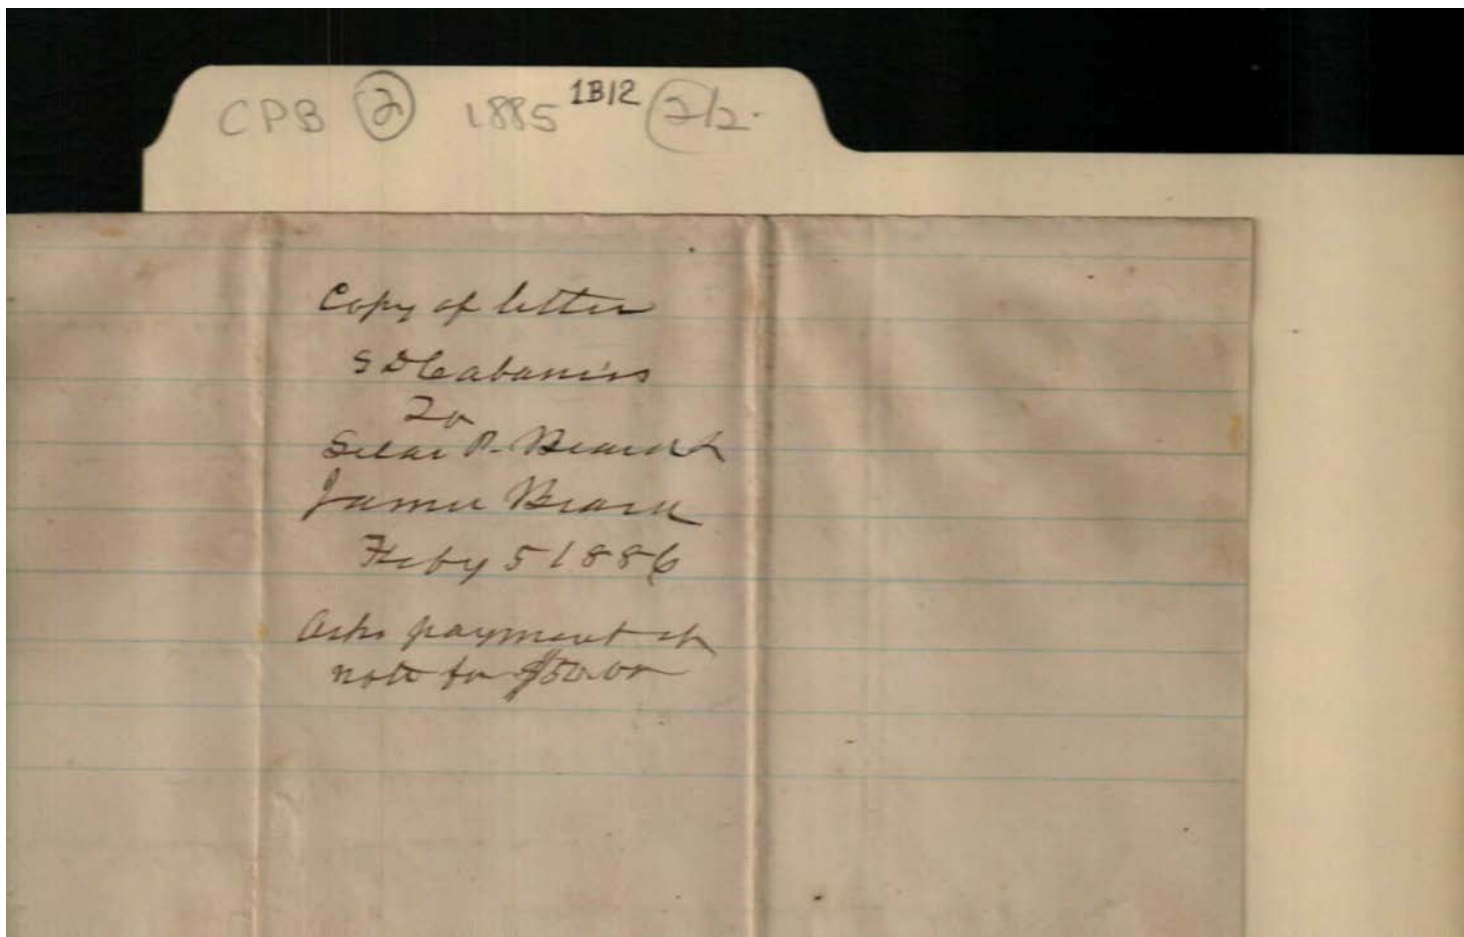 CPB 2 1885 1B12 2/2.
Copy of letter
S D Cabaniss
To
Silas P. Beard &
James Beard
Feby 5 1886
Asks payment of
note for $50.00